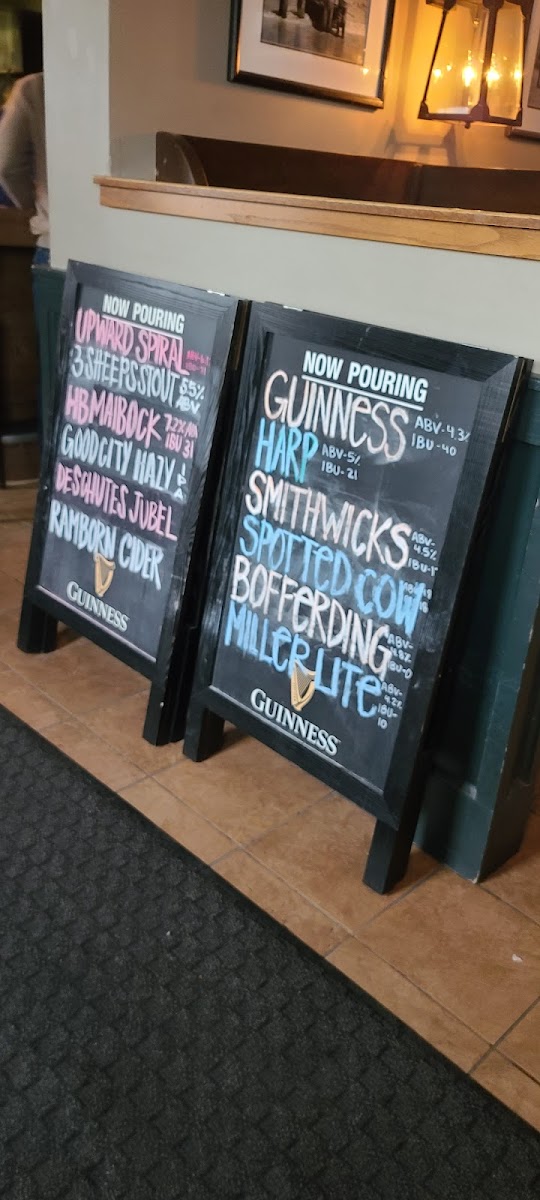 NOW POURING
UPWARD SPIRAL
3 SHEEPS STOUT 5.5% ABV
HB MAIBOCK 7.2% ABV IBU 31
GOOD CITY HAZY IPA
DESCHUTES JUBEL
RAMBORN CIDER
GUINNESS
NOW POURING
GUINNESS ABV-4.3% IBU-40
HARP ABV-5% IBU-21
SMITHWICKS ABV-4.5%
SPOTTED COW
BOFFERDING ABV-
MILLER LITE ABV-4.2% IBU-10
GUINNESS